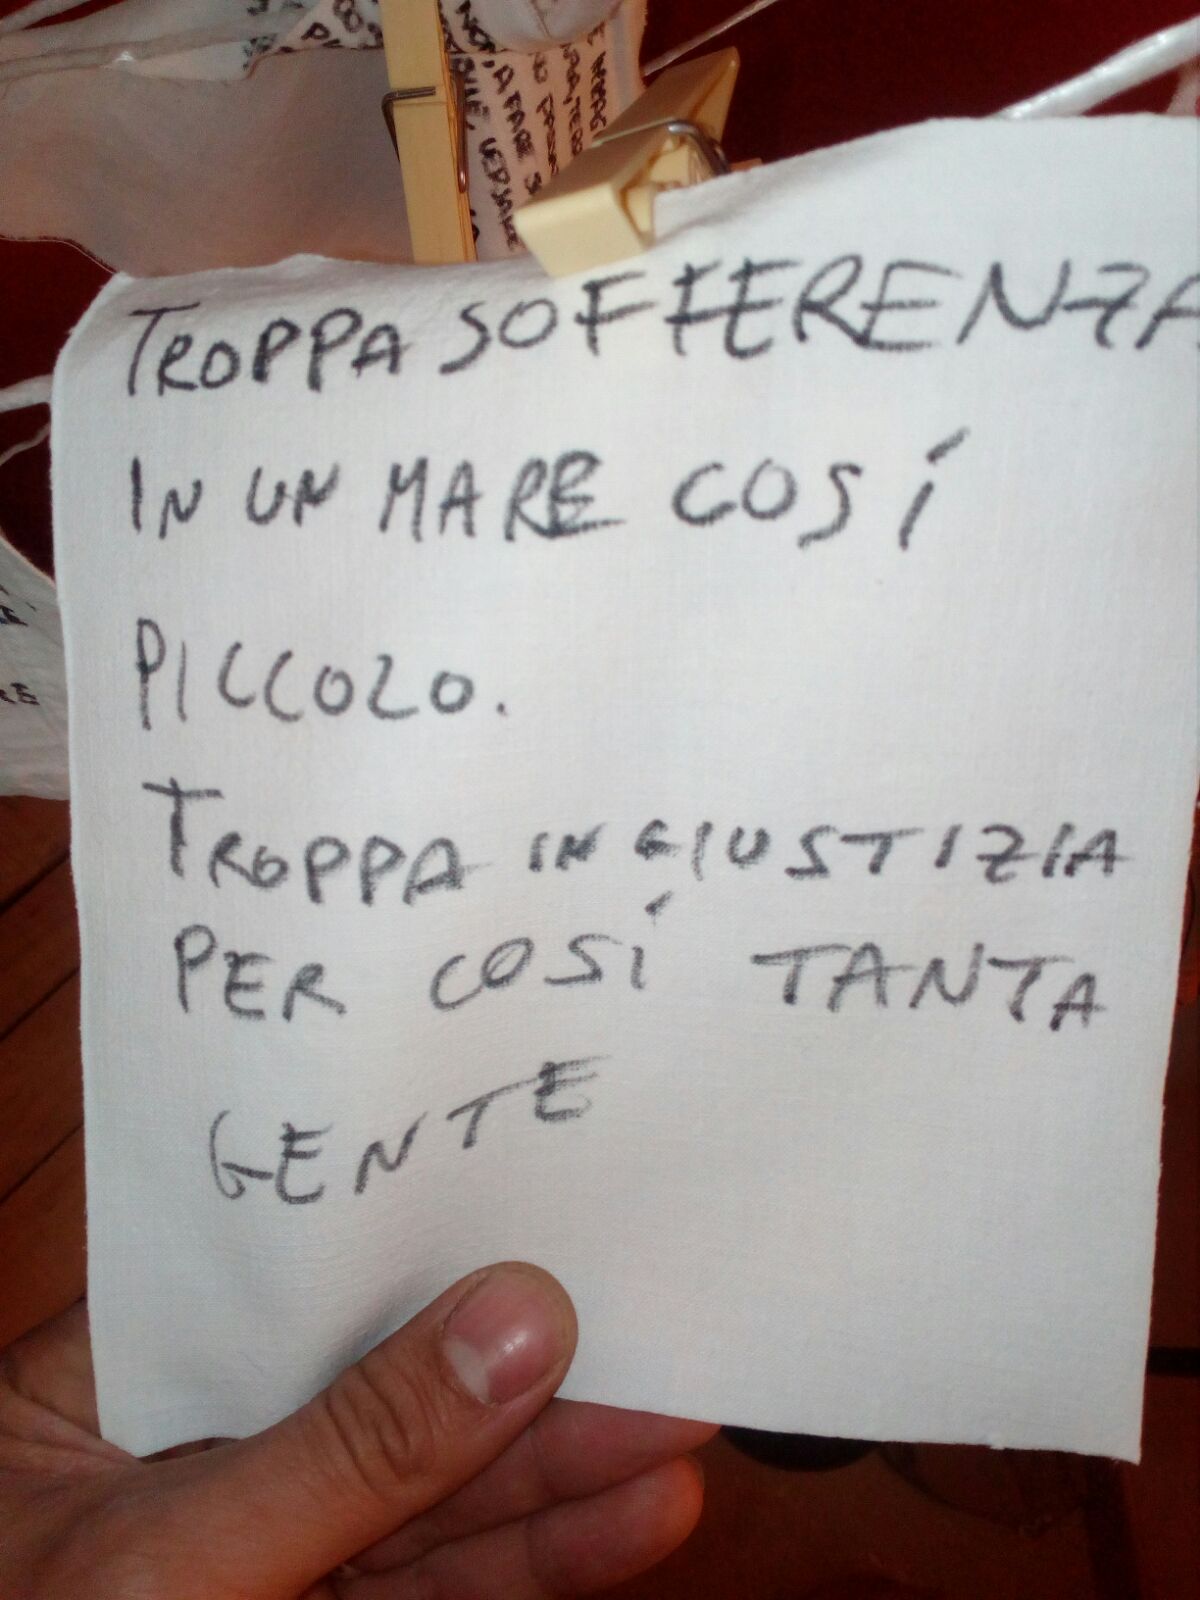 TROPPA SOFFERENZA
IN UN MARE COSÍ
PICCOLO.
TROPPA INGIUSTIZIA
PER COSÍ TANTA
GENTE
NON, A FARE
VERSARE